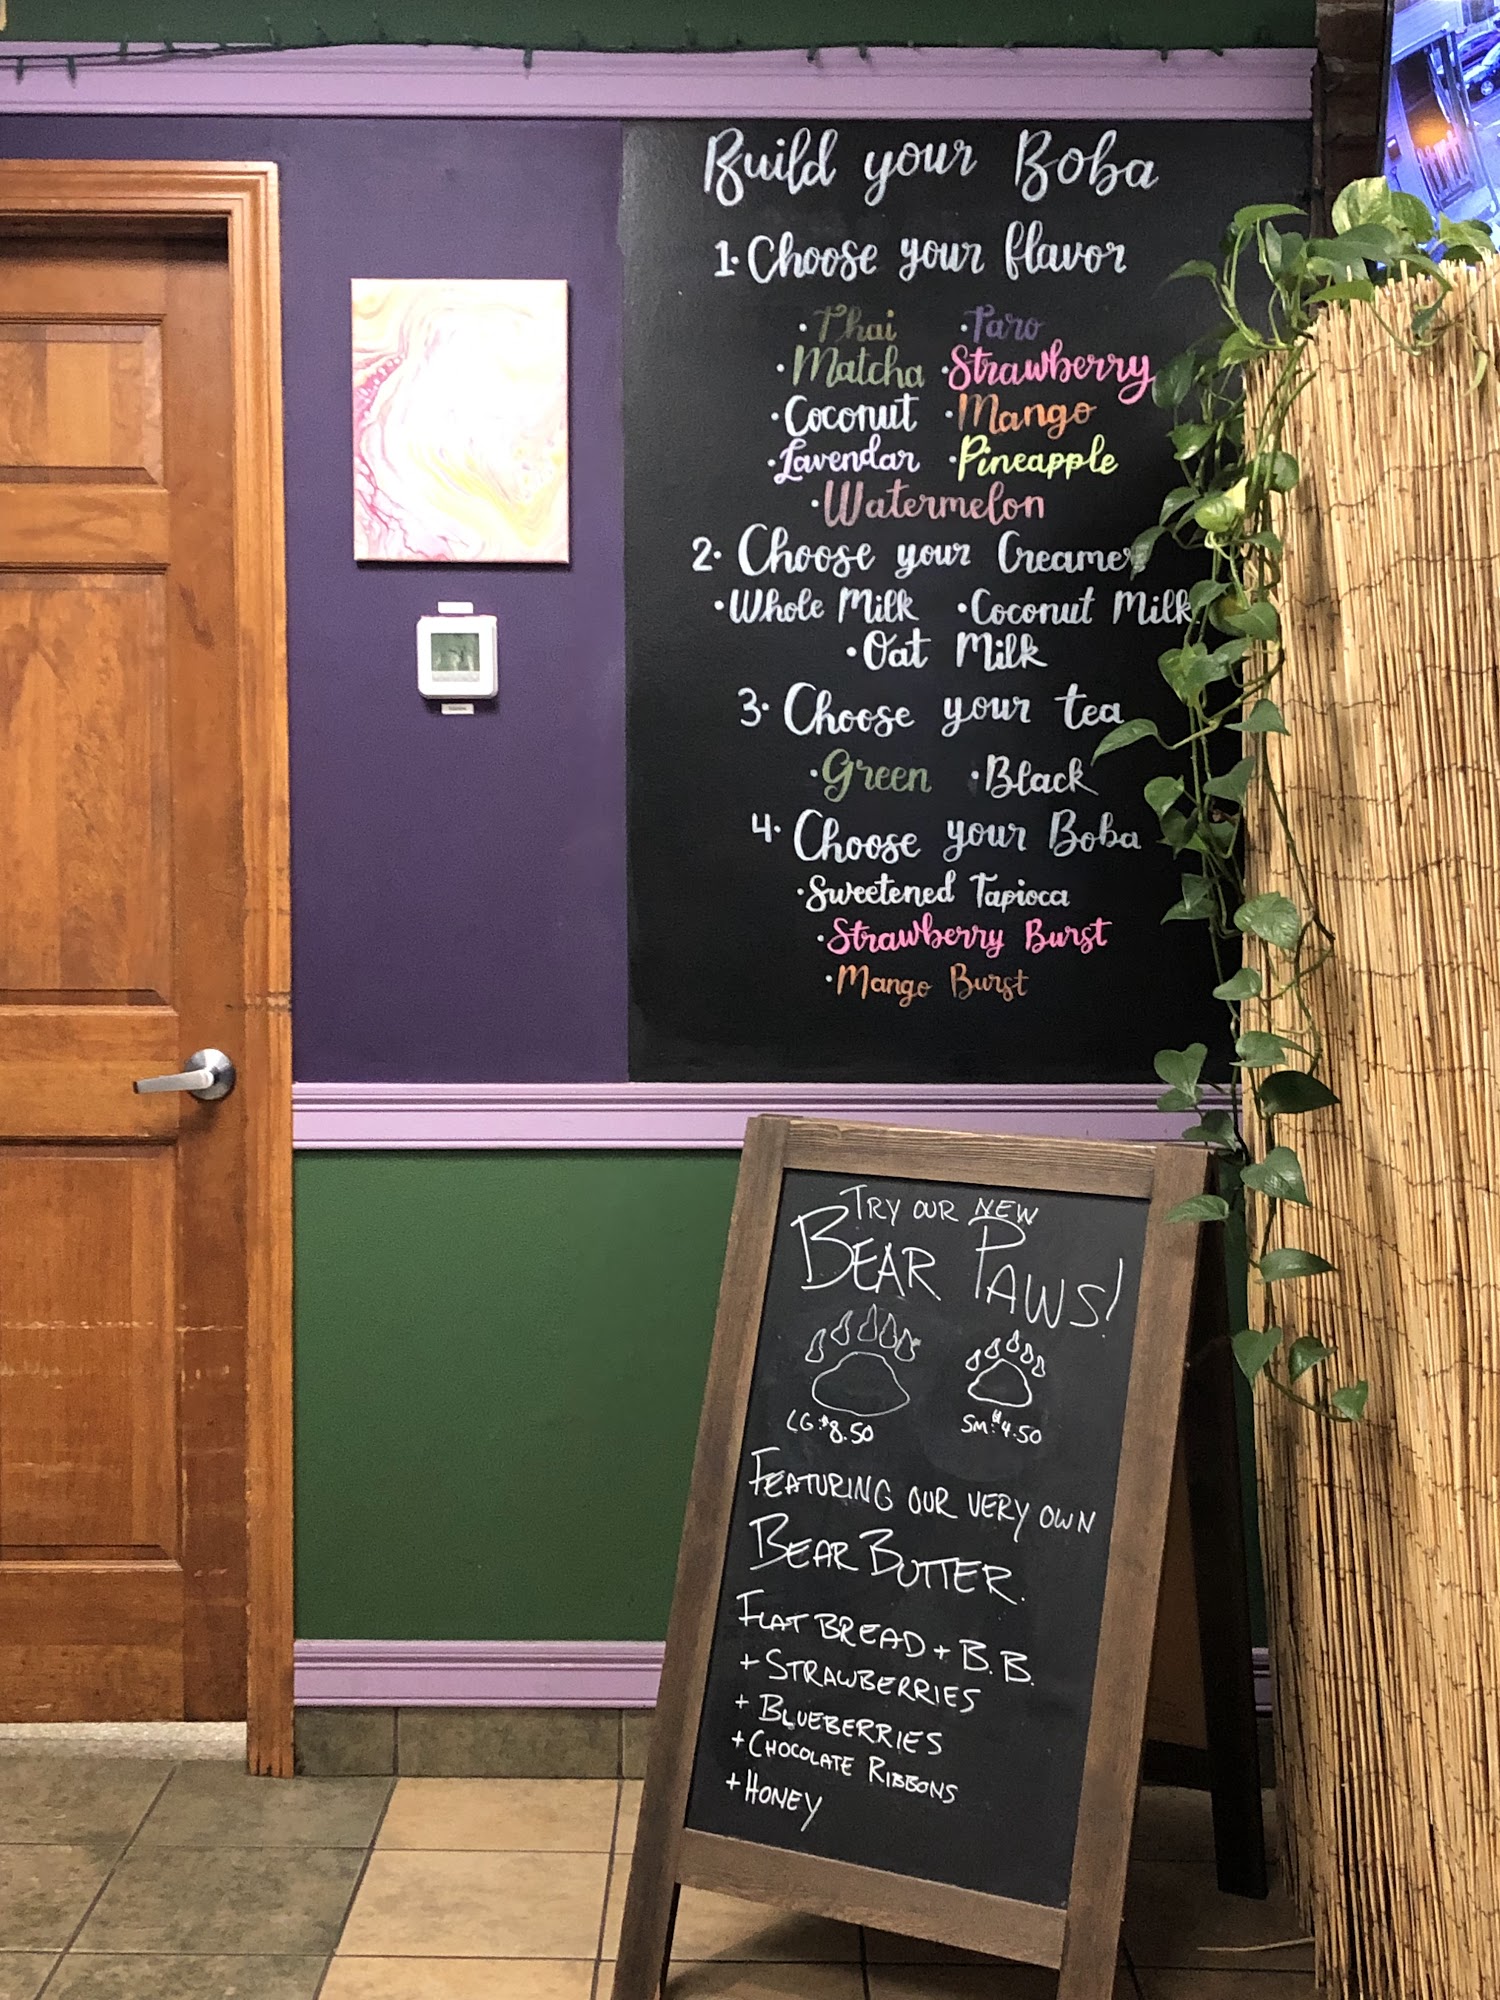 Build your Boba
1. Choose your flavor
• Thai • Taro
• Matcha • Strawberry
• Coconut • Mango
• Lavendar • Pineapple
• Watermelon
2. Choose your Creamer
• Whole Milk • Coconut Milk
• Oat Milk
3. Choose your tea
• Green • Black
4. Choose your Boba
• Sweetened Tapioca
• Strawberry Burst
• Mango Burst
TRY OUR NEW
BEAR PAWS!
LG: $8.50 SM: $4.50
FEATURING OUR VERY OWN
BEAR BUTTER.
FLAT BREAD + B.B.
+ STRAWBERRIES
+ BLUEBERRIES
+ CHOCOLATE RIBBONS
+ HONEY